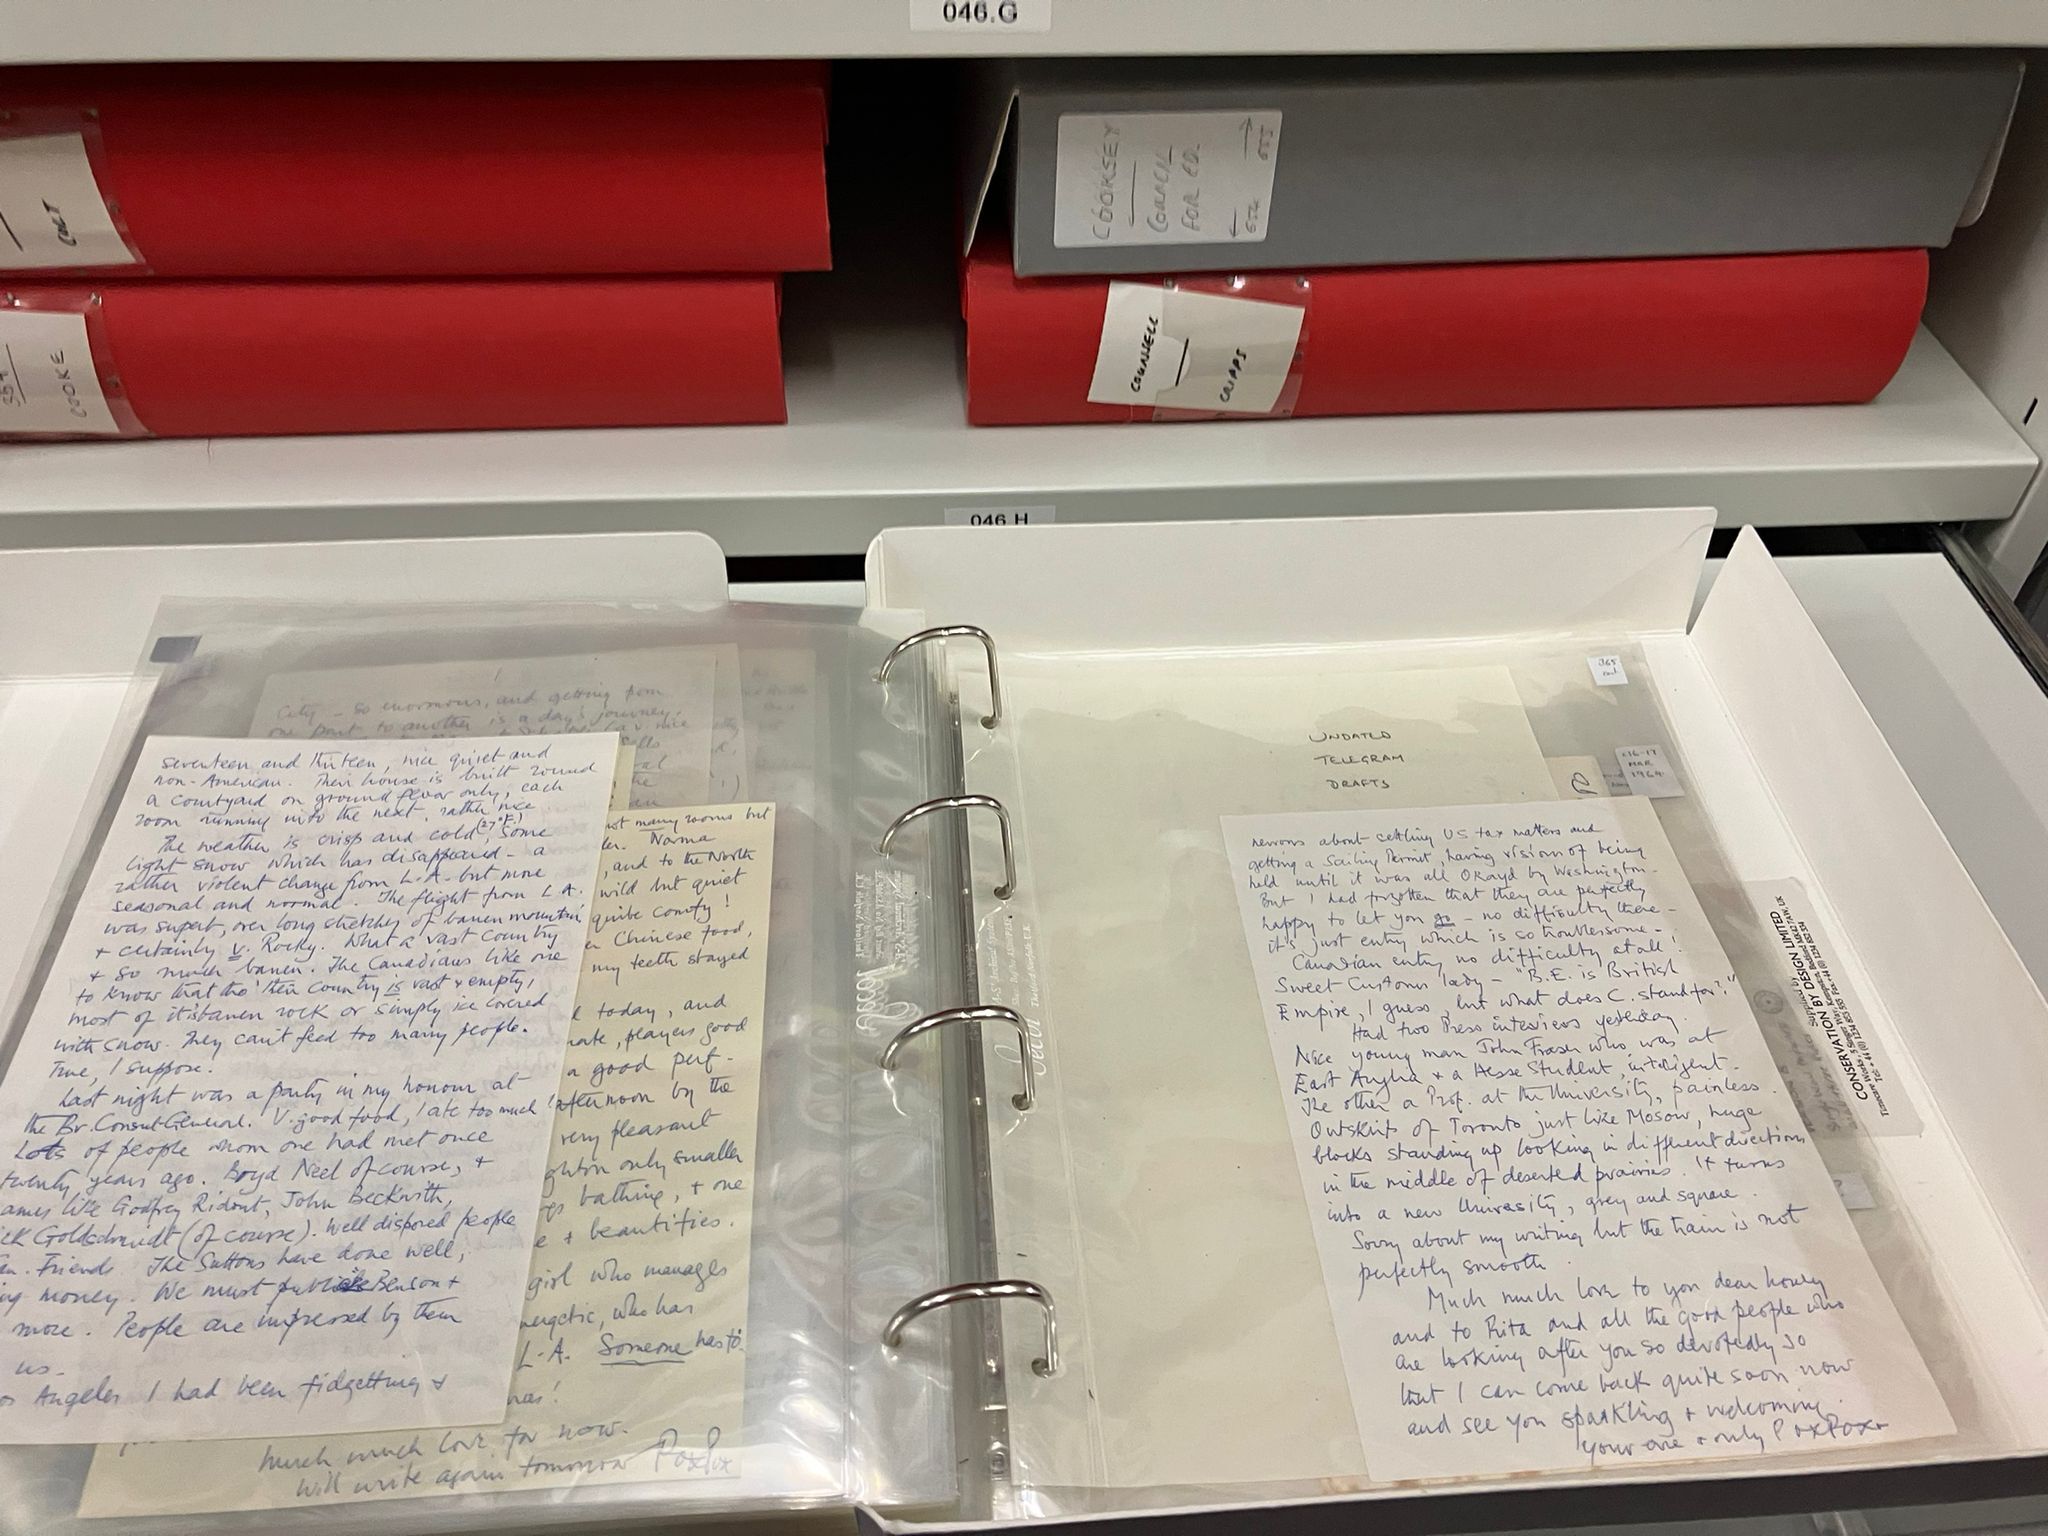 046.G
COLT
354
COOKE
COOKSEY
COUNCIL
FOR ED
COUNSELL
CRIPPS
046.H
City – so enormous, and getting from
one part to another is a day's journey.
seventeen and thirteen, nice quiet and
non-American. Their house is built round
a courtyard on ground floor only, each
room running into the next, rather nice
The weather is crisp and cold (27°F.), some
light snow which has disappeared – a
rather violent change from L.A. but more
seasonal and normal. The flight from L.A.
was superb, over long stretches of barren mountain,
+ certainly v. Rocky. What a vast country
+ so much barren. The Canadians like one
to know that tho' their country is vast + empty,
most of it is barren rock or simply ice covered
with snow. They can't feed too many people.
True, I suppose.
Last night was a party in my honour at
the Br. Consul-General. V. good food, I ate too much!
Lots of people whom one had met once
twenty years ago. Boyd Neel of course, +
ames like Godfrey Ridout, John Beckwith,
ick Goldschmidt (of course). Well disposed people
Friends. The Suttons have done well,
ng money. We must publicise Benson +
more. People are impressed by them
us –
os Angeles I had been fidgetting +
not many rooms but
Norma
, and to the North
wild but quiet
quite comfy!
Chinese food,
my teeth stayed
today, and
players good
a good perf-
afternoon by the
very pleasant
ghton only smaller
bathing, + one
e + beautifies.
girl who manages
ergetic, who has
L-A. Someone has to
was!
Much much love for now.
Will write again tomorrow PoxPox
UNDATED
TELEGRAM
DRAFTS
365
16-17
MAR
1964
nervous about settling US tax matters and
getting a Sailing Permit, having vision of being
held until it was all Okayd by Washington.
But I had forgotten that they are perfectly
happy to let you go – no difficulty there –
it's just entry which is so troublesome –
Canadian entry no difficulty at all!
Sweet Customs lady – "B.E. is British
Empire, I guess, but what does C. stand for?"
Had two Press interviews yesterday.
Nice young man John Fraser who was at
East Anglia + a Hesse Student, intelligent.
The other a Prof. at the University, painless.
Outskirts of Toronto just like Moscow, huge
blocks standing up looking in different directions
in the middle of deserted prairies. It turns
into a new University, grey and square.
Sorry about my writing but the train is not
perfectly smooth.
Much much love to you dear honey
and to Rita and all the good people who
are looking after you so devotedly so
that I can come back quite soon now
and see you sparkling + welcoming.
your one + only PoxPox
Supplied by:
CONSERVATION BY DESIGN LIMITED